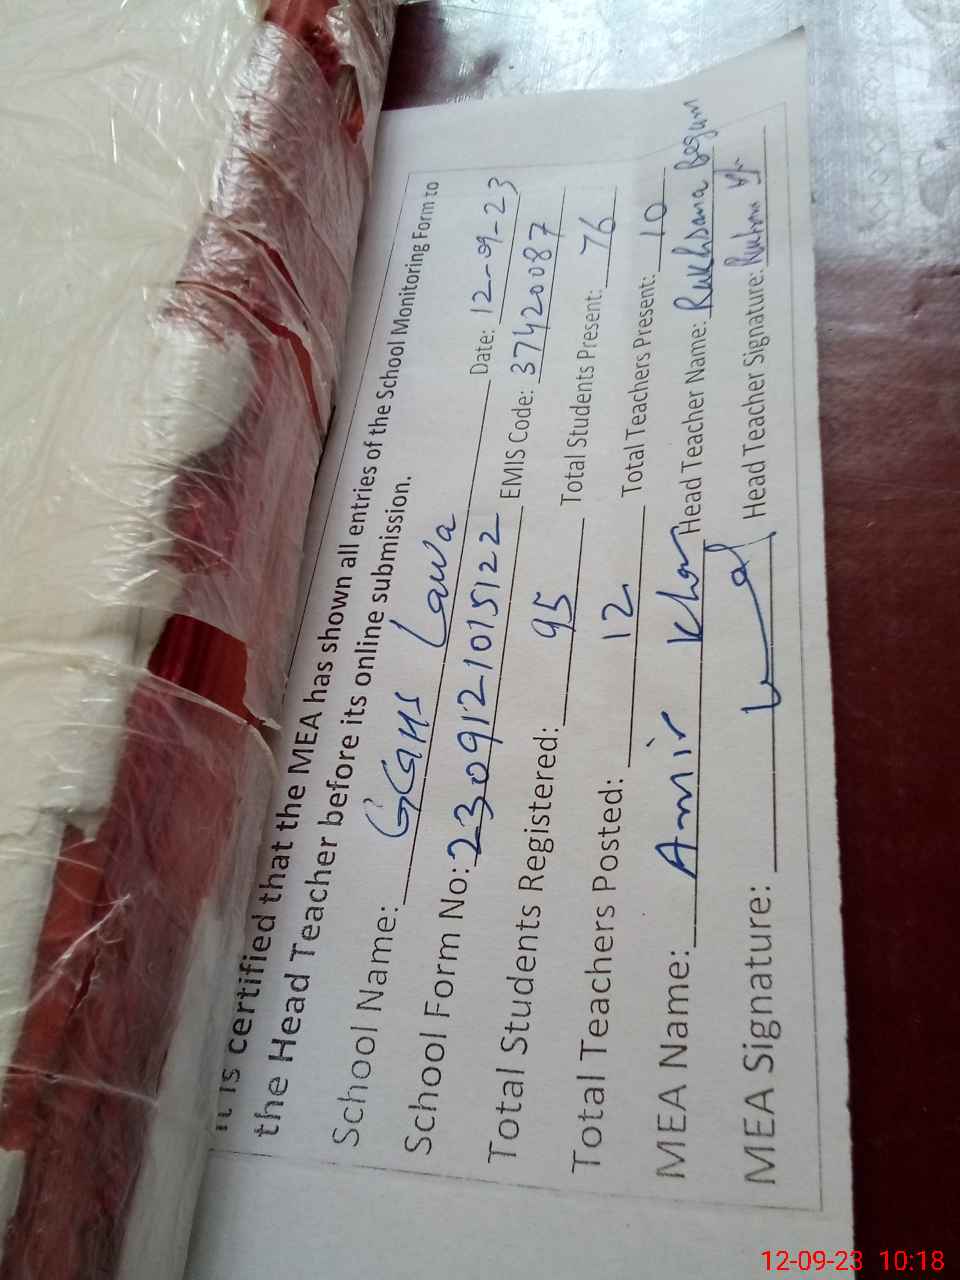 It is certified that the MEA has shown all entries of the School Monitoring Form to
the Head Teacher before its online submission.
School Name: GGHS Lawa Date: 12-09-23
School Form No: 2309121015122 EMIS Code: 37420087
Total Students Registered: 95 Total Students Present: 76
Total Teachers Posted: 12 Total Teachers Present: 10
MEA Name: Amir Khan Head Teacher Name: Rukhsana Begum
MEA Signature: Head Teacher Signature:
12-09-23 10:18